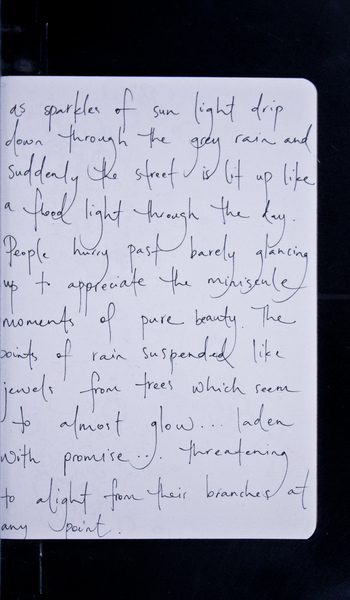 as sparkles of sun light drip
down through the grey rain and
suddenly the street is lit up like
a flood light through the day.
People hurry past barely glancing
up to appreciate the miniscule
moments of pure beauty. The
points of rain suspended like
jewels from trees which seem
to almost glow... laden
with promise... threatening
to alight from their branches at
any point.